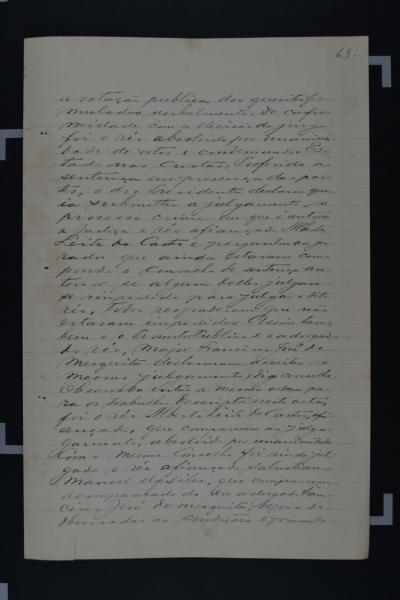 63.
a votação publica dos quesitos for-
mulados verbalmente. De confor-
midade com a decisão do jury
foi o réu absolvido por unanimi-
dade de votos e condemnado Es-
tado nas Custas. Proferida a
sentença em presença das par-
tes, o dr. Presidente declarou que
ia submetter a julgamento o
processo crime em que é autora
a Justiça e réo afiançado Alberto
Leite de Castro e perguntou aos ju-
rados que ainda estavam com-
pondo o Conselho de sentença an-
terior se algum delles julgava-
se impedido para julgar o dito
réo, todos responderam que não
estavam impedidos. Assim tam-
bem o Promotor Publico e advogado
do réo, Major Francisco José de
Mesquita declararam aceitar o
mesmo julgamento,
Observados a mesma ordem pa-
ra os trabalhos descripta nesta acta,
foi o réo Alberto Leite de Castro, afi-
ançado, que compareceu ao julga-
gamento, absolvido por unanimidade.
Com o mesmo Conselho foi ainda jul-
gado o réo afiançado Salustiano
Manoel da Silva, que compareceu
acompanhado de seu advogado Fran-
cisco José de Mesquita, depois de
observadas as condições e formali-